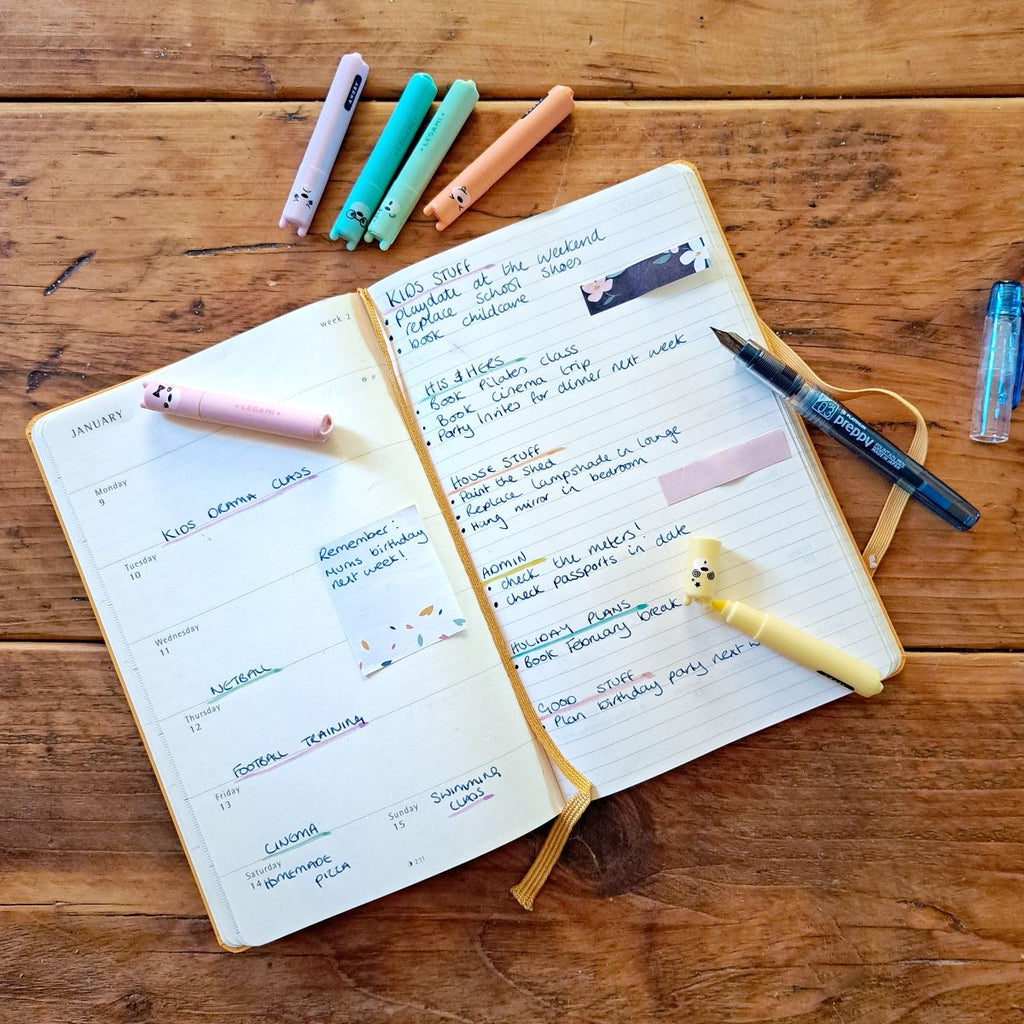 LEGAMI
LEGAMI
week 2
JANUARY
LEGAMI
Monday
9
KIDS DRAMA CLASS
Tuesday
10
Remember:
Mums birthday
next week!
Wednesday
11
NETBALL
Thursday
12
FOOTBALL TRAINING
Friday
13
CINEMA
Saturday
14 HOMEMADE
PIZZA
Sunday
15
SWIMMING
CLASS
KIDS STUFF
• Playdate at the weekend
• replace school shoes
• book childcare
HIS & HERS
• Book Pilates class
• Book cinema trip
• Party Invites for dinner next week
HOUSE STUFF
• Paint the shed
• Replace lampshade in lounge
• Hung mirror in bedroom
ADMIN
• check the meters!
• check passports in date
HOLIDAY PLANS
• Book February break
GOOD STUFF
• Plan birthday party next
03
preppy
FOUNTAIN PEN
MADE IN JAPAN